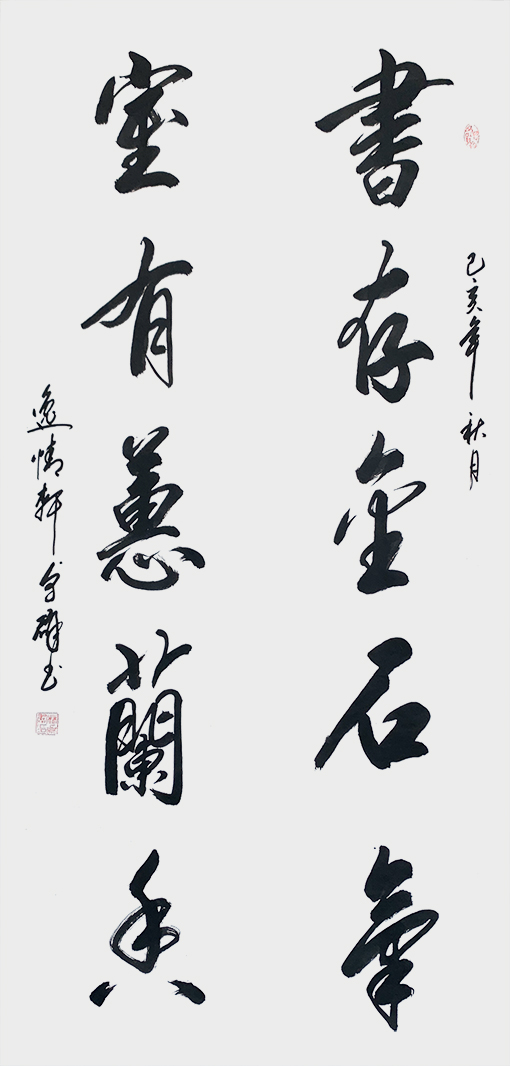 己亥年 秋月
書存金石氣
室有蕙蘭香
逸情軒